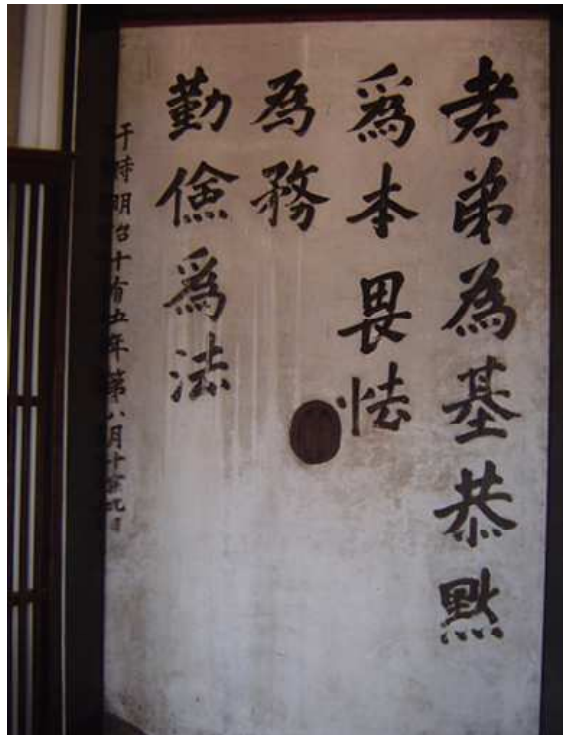 孝弟為基恭黙
爲本畏怯
為務
勤儉爲法
于時明治十有五年第八月十有九日